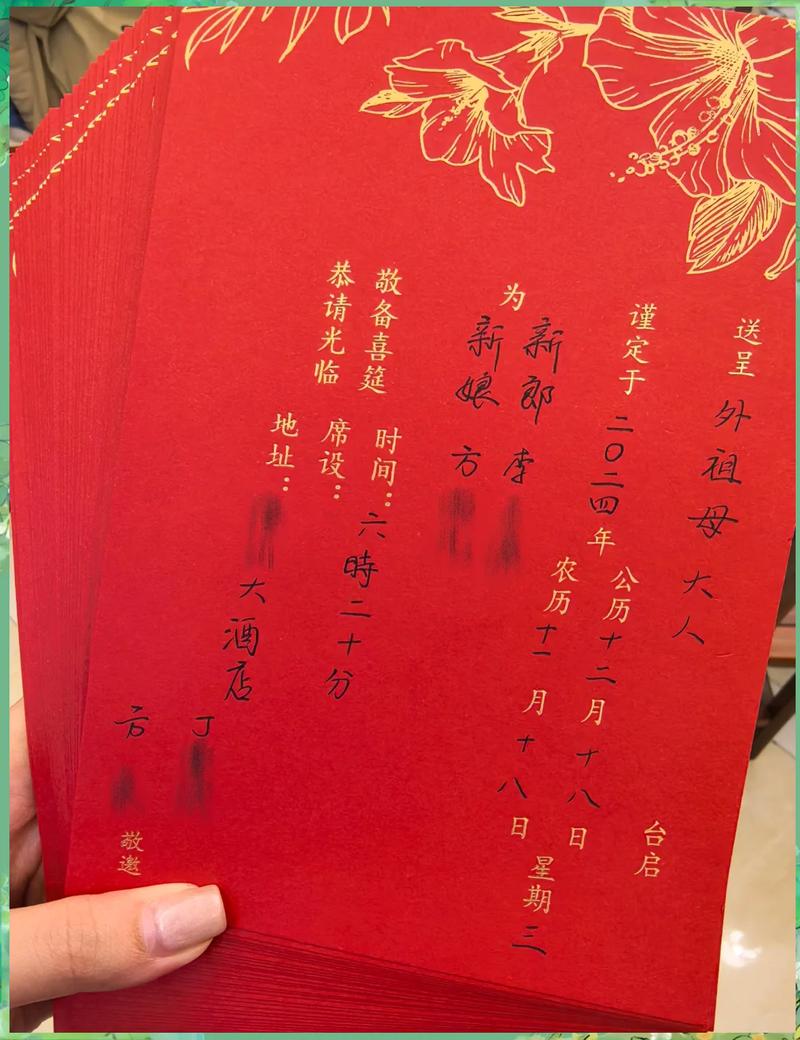 送呈 外祖母大人 台启
谨定于二〇二四年 公历十二月十八日 星期三
农历十一月十八日
为 新郎 李
新娘 方
敬备喜筵 时间：六時二十分
恭请光临 席设：
地址： 大酒店
丁
方 敬邀